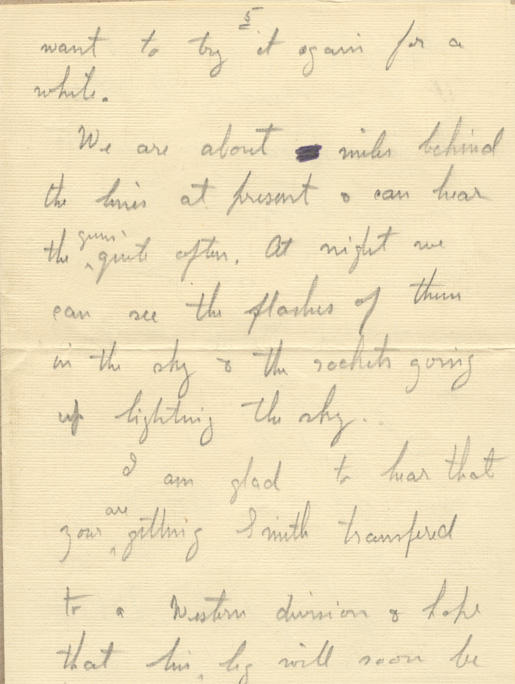 5
want to try it again for a
while.
We are about miles behind
the lines at present & can hear
the guns quite often. At night we
can see the flashes of them
in the sky & the rockets going
up lighting the sky.
I am glad to hear that
your are getting Smith transfered
to a Western division & hope
that his leg will soon be